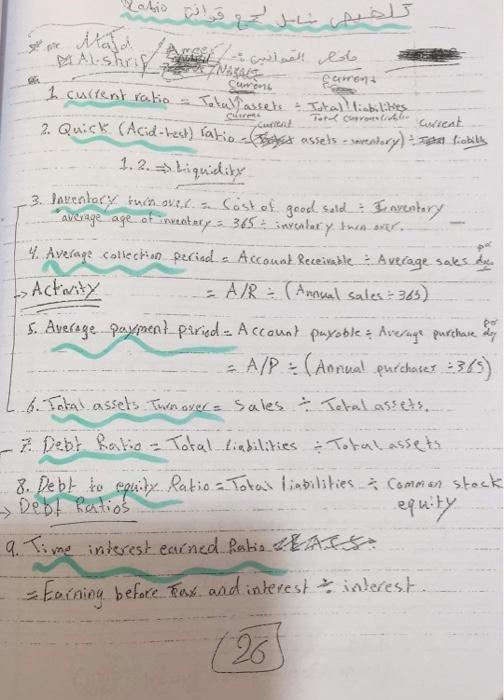 تلخيص شامل لجميع قوانين Ratio
Majd Al-shrif / Ameer
current current
1. current ratio = Total assets ÷ Total liabilities
current Total current
2. Quick (Acid-test) ratio = ( assets - inventory) ÷ current liabilits
1. 2. ⇒ Liquidity
3. Inventory turn over = Cost of good sold ÷ Inventory
average age of inventory = 365 ÷ inventory turn over.
4. Average collection period = Account Receivable ÷ Average sales per day
→ Activity = A/R ÷ (Annual sales ÷ 365)
5. Average payment period = Account payable ÷ Average purchase per day
= A/P ÷ (Annual purchases ÷ 365)
6. Total assets Turn over = Sales ÷ Total assets.
7. Debt Ratio = Total liabilities ÷ Total assets
8. Debt to equity Ratio = Total liabilities ÷ Common stock
→ Debt Ratios equity
9. Time interest earned Ratio
= Earning before Tax and interest ÷ interest.
26